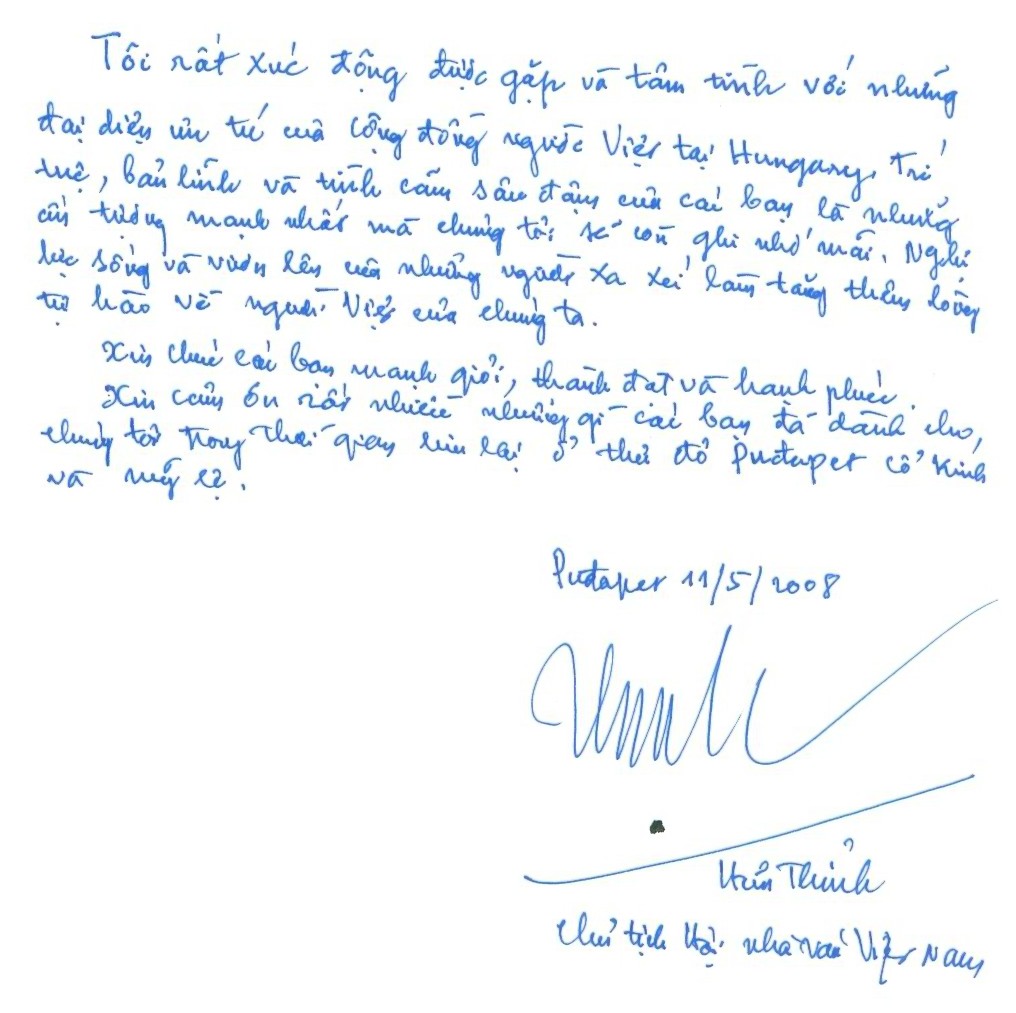 Tôi rất xúc động được gặp và tâm tình với những
đại diện ưu tú của cộng đồng người Việt tại Hungary. Trí
tuệ, bản lĩnh và tình cảm sâu đậm của các bạn là những
ấn tượng mạnh nhất mà chúng tôi sẽ còn ghi nhớ mãi. Nghị
lực sống và vươn lên của những người xa xứ làm tăng thêm lòng
tự hào về người Việt của chúng ta.
Xin chúc các bạn mạnh giỏi, thành đạt và hạnh phúc.
Xin cảm ơn rất nhiều những gì các bạn đã dành cho,
chúng tôi trong thời gian lưu lại ở thủ đô Puđapet cổ kính
và mỹ lệ.
Puđapet 11/5/2008
Hữu Thỉnh
Chủ tịch Hội nhà văn Việt Nam